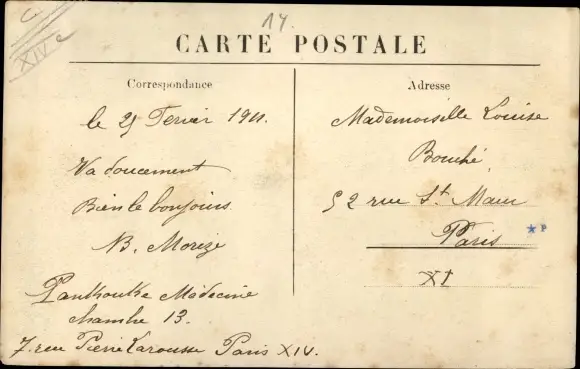 14.
XIVe
CARTE POSTALE
Correspondance
Adresse
le 25 Fevrier 1911.
Va doucement
Bien le bonjours
N. Morize
Pankouke Médecine
chambre 13.
7. rue Pierre Larousse Paris XIV.
Mademoiselle Louise
Bouché
52 rue St. Maur
Paris
XI
P